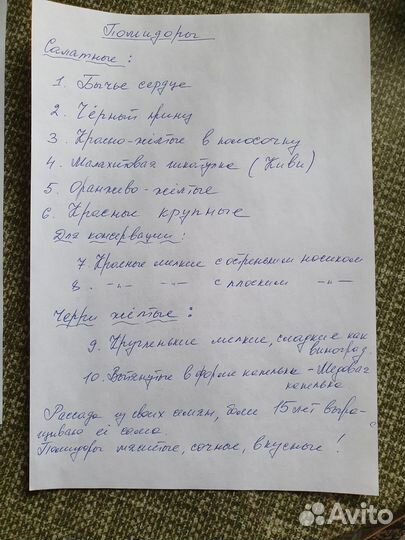 Помидоры
Салатные:
1. Бычье сердце
2. Чёрный принц
3. Красно-жёлтые в полосочку
4. Малахитовая шкатулка (Киви)
5. Оранжево-жёлтые
6. Красные крупные
Для консервации:
7. Красные мелкие с остреньким носиком
8. -"- -"- с плоским -"-
Черри жёлтые:
9. Кругленькие мелкие, сладкие как
виноград
10. Вытянутые в форме капельки - Медовая
капелька
Рассада из своих семян, более 15 лет выра-
щиваю её сама.
Помидоры мясистые, сочные, вкусные!
Avito